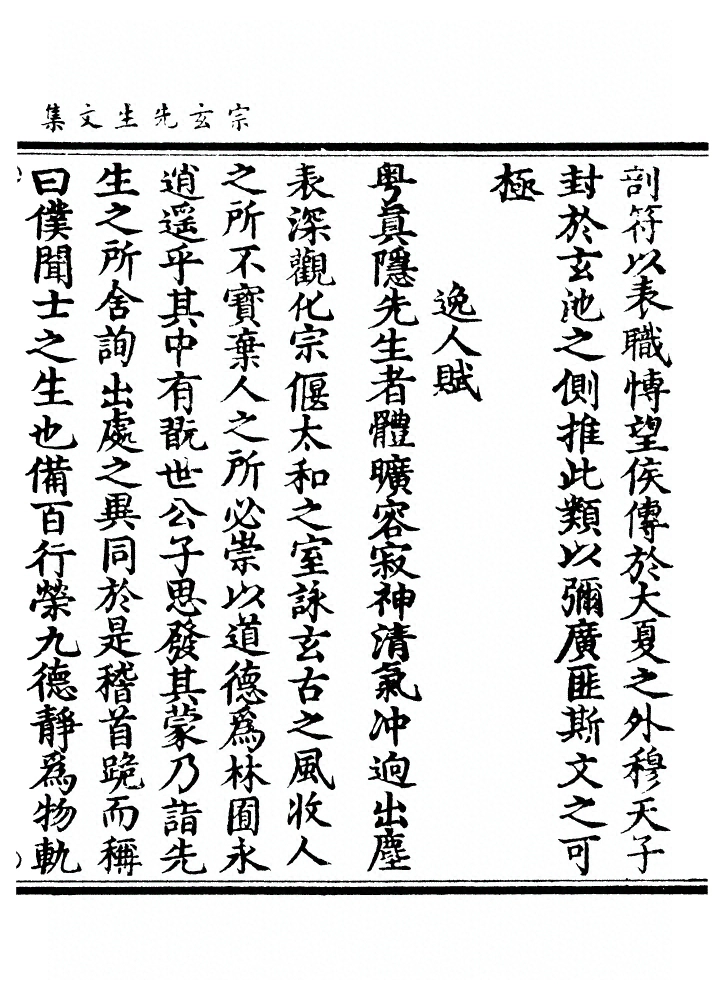 宗玄先生文集
剖符以表職慱望侯傳於大夏之外穆天子
封於玄池之側推此類以彌廣匪斯文之可
極
逸人賦
粤真隱先生者體曠容寂神清氣冲逈出塵
表深觀化宗偃太和之室詠玄古之風收人
之所不寶棄人之所必崇以道德爲林囿永
逍遥乎其中有翫世公子思發其蒙乃詣先
生之所舍詢出處之異同於是稽首跪而稱
曰僕聞士之生也備百行榮九德靜爲物軌